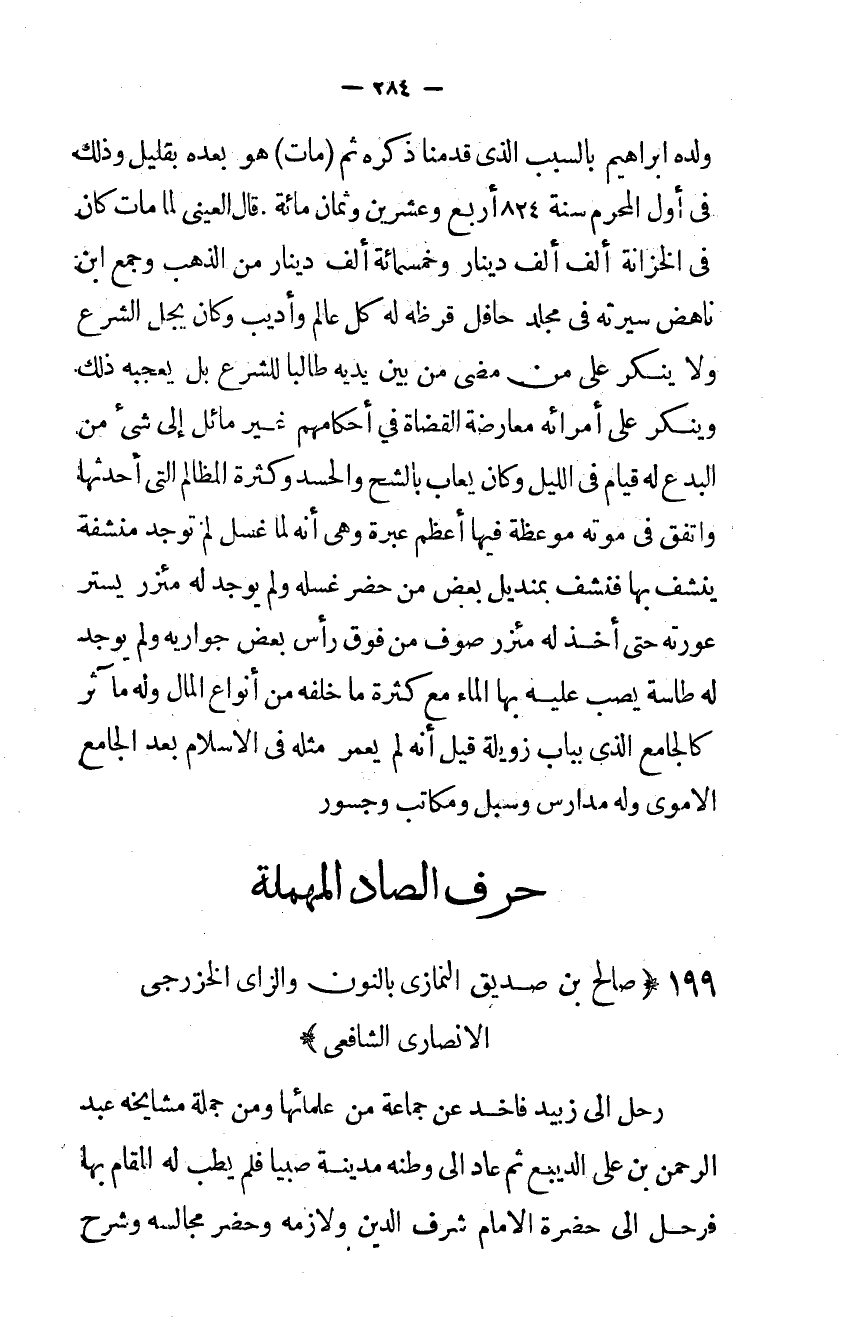 — ٢٨٤ —
ولده ابراهيم بالسبب الذى قدمنا ذكره ثم (مات) هو بعده بقليل وذلك
فى أول المحرم سنة ٨٢٤ أربع وعشرين وثمان مائة . قال العينى لما مات كان
فى الخزانة ألف ألف دينار وخمسمائة ألف دينار من الذهب وجمع ابن
ناهض سيرته فى مجلد حافل قرظه له كل عالم وأديب وكان يجل الشرع
ولا ينكر على من مضى من بين يديه طالبا للشرع بل يعجبه ذلك
وينكر على أمرائه معارضة القضاة في أحكامهم غير مائل إلى شىء من
البدع له قيام فى الليل وكان يعاب بالشح والحسد وكثرة المظالم التى أحدثها
واتفق فى موته موعظة فيها أعظم عبرة وهى أنه لما غسل لم توجد منشفة
ينشف بها فنشف بمنديل بعض من حضر غسله ولم يوجد له مئزر يستر
عورته حتى أخذ له مئزر صوف من فوق رأس بعض جواريه ولم يوجد
له طاسة يصب عليه بها الماء مع كثرة ما خلفه من أنواع المال وله مآثر
كالجامع الذى بباب زويلة قيل أنه لم يعمر مثله فى الاسلام بعد الجامع
الاموى وله مدارس وسبل ومكاتب وجسور
حرف الصاد المهملة
١٩٩ ﴿ صالح بن صديق النمازى بالنون والزاى الخزرجى
الانصارى الشافعى ﴾
رحل الى زبيد فاخد عن جماعة من علمائها ومن جملة مشايخه عبد
الرحمن بن على الديبع ثم عاد الى وطنه مدينة صبيا فلم يطب له المقام بها
فرحل الى حضرة الامام شرف الدين ولازمه وحضر مجالسه وشرح